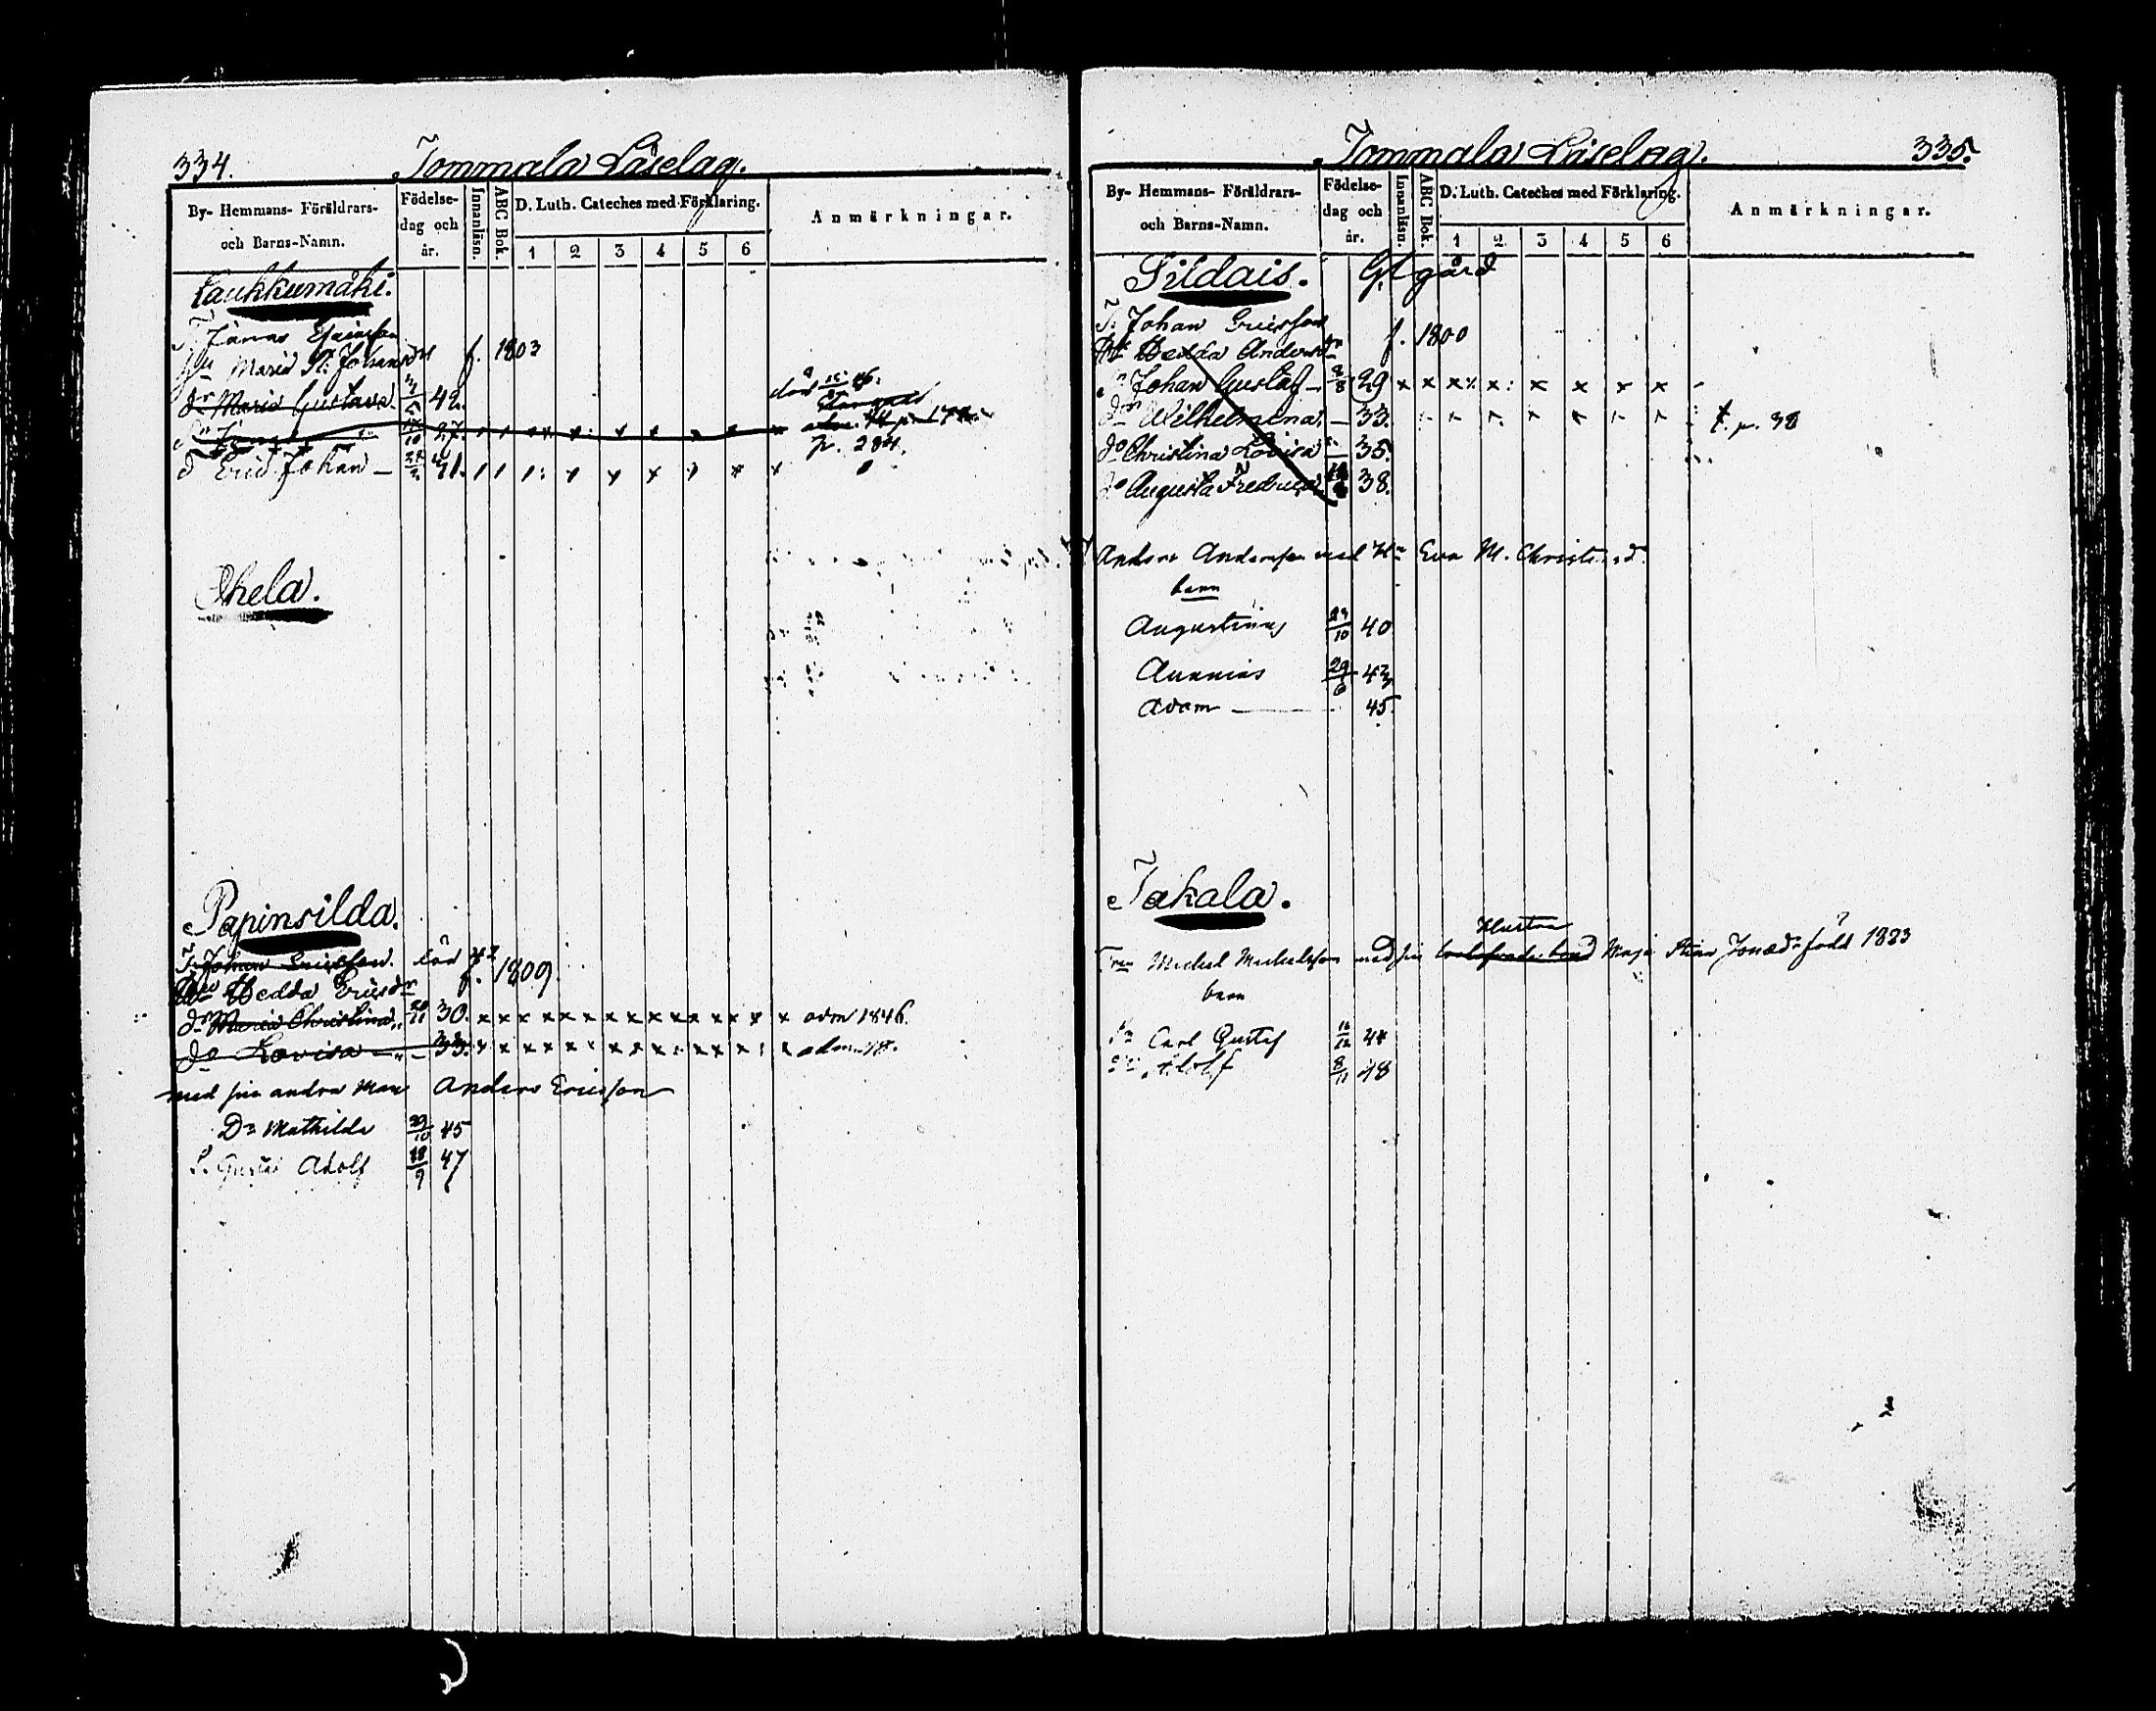 334.
Tommala Läselag.
By- Hemmans- Föräldrars- och Barns-Namn.
Födelse- dag och år.
Innanläsn.
ABC Bok.
D. Luth. Cateches med Förklaring.
1 2 3 4 5 6
Anmärkningar.
Laukkumäki.
T.
Maria St. Johansdr f. 1803
dr Maria Gustava 42. död
27.
p. 284.
d Eric Johan — 41.
Ohela.
Papinsilda.
T. Johan Ericsson. död
Hedda Ericsdr f. 1809
dr Maria Christina 30. x x x x x x x x x x x x x x adm 1846.
do Lovisa — 33. x x x x x x x x x x x x x adm
med sin andra Man Anders Ericsson
Dr Mathilda 29/10 45
S. Gustaf Adolf 18/9 47
335.
Tommala Läselag.
By- Hemmans- Föräldrars- och Barns-Namn.
Födelse- dag och år.
Innanläsn.
ABC Bok.
D. Luth. Cateches med Förklaring.
1 2 3 4 5 6
Anmärkningar.
Sildais. Gl gård
T. Johan Ericsson
Hedda Andersdr f. 1800
Sn Johan Gustaf — 29 x x x x x x x x
dr Wilhelmina — 33. t. p. 38
do Christina Lovisa — 35.
do Augusta Fredrica 38.
Anders Andersson med Hu Eva M. Christ
barn
Augustinus 29/10 40
Ananias 29/6 43
Adam — 45.
Takala.
Hustru
Michel Michelsson med sin Maja Stina Jonæd: född 1823
barn
Sn Carl Gustaf 44
Adolf 8/11 48